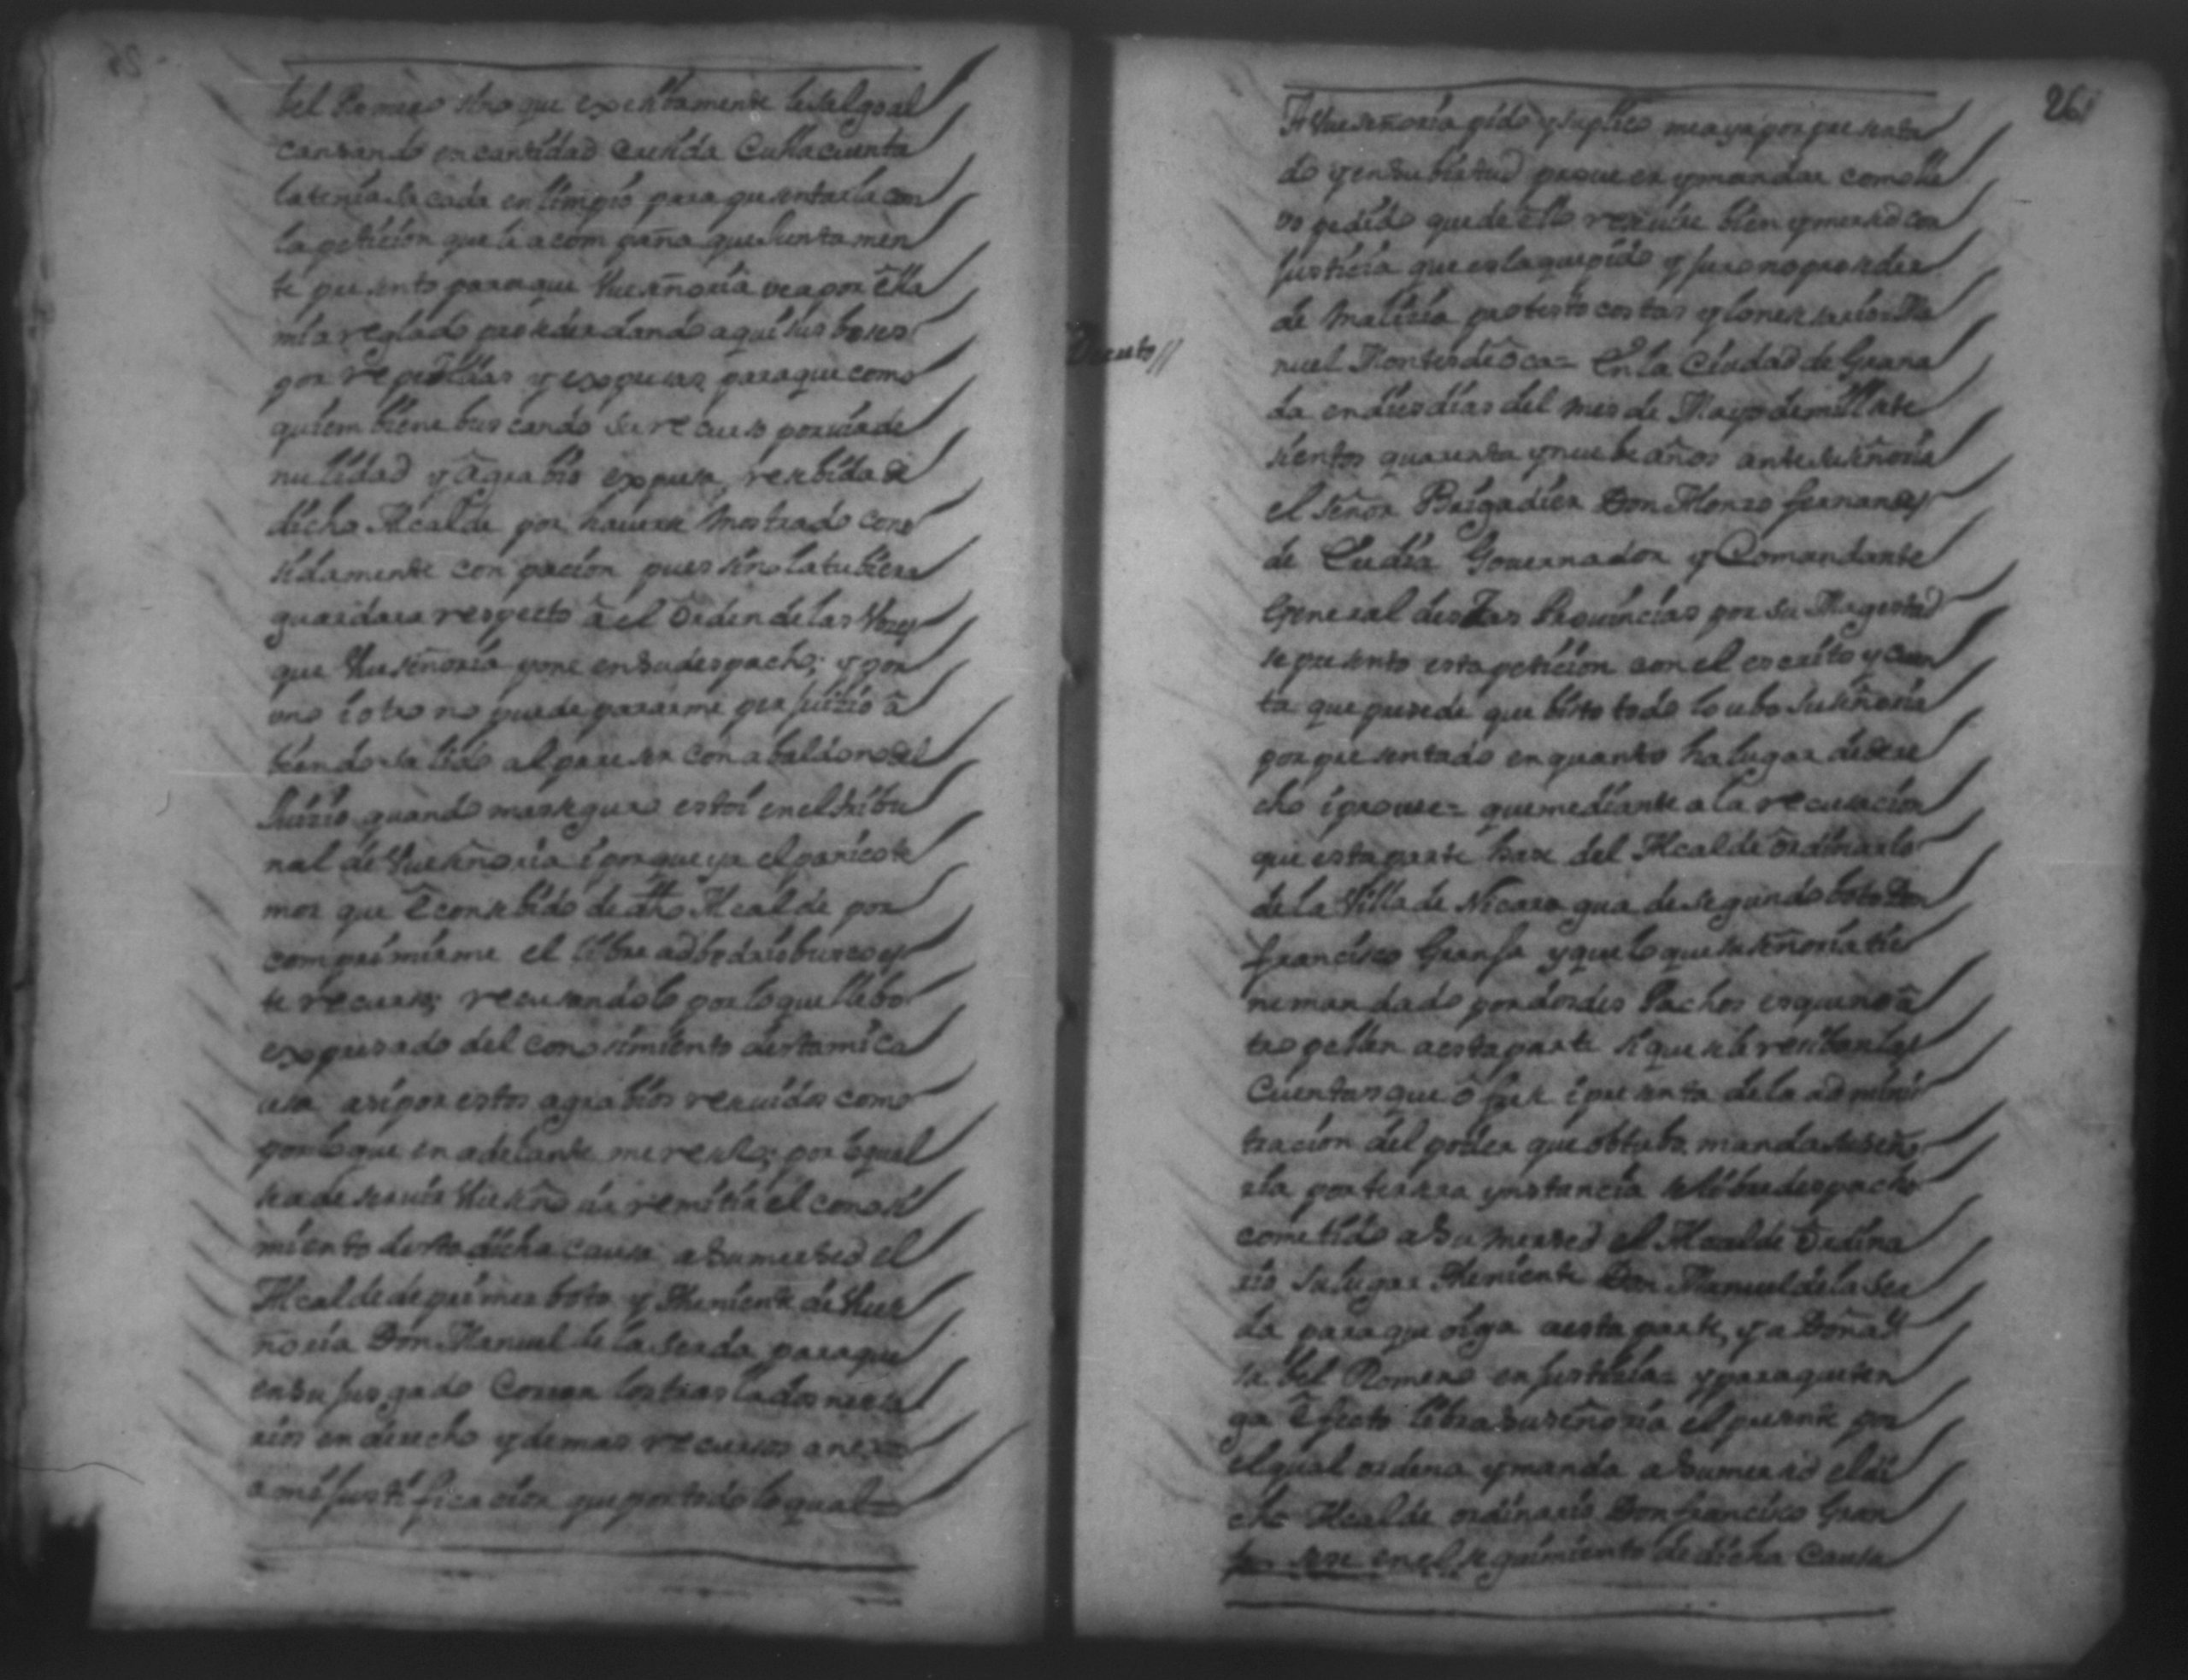 bel Romero sino que expresamente le salgo al
cansando en cantidad Cresida Cuia cuenta
la tenia sacada en limpio para presentarla con
la peticion que le acompaña que Juntamen
te presento para que Vueseñoria vea por ella
mi areglado proseder dando aqui sus boses
por repetidas y expresas para que como
quiem biene buscando su recurso por via de
nulidad y agrabio expresa, resebida de
dicho Alcalde por haverse mostrado cono
sidamente con pacion pues sino la tubiera
guardara respecto â el Orden de las Vozes
que Vueseñoria pone en su despacho; y por
uno i otro no puede pararme perjuizio â
biendo salido al pareser con abaldono del
Juizio quando mas seguro estoi en el tribu
nal de Vueseñoria i porque ya el panico te
mor que ê consebido de dho Alcalde por
comprimirme el libre adbedrio busco es
te recurso; recusandolo por lo que llebo
expresado del conosimiento desta mi ca
usa asi por estos agrabios resevidos como
por lo que en adelante me reselo; por lo qual
sea de servir Vueseñoria remitir el conosi
miento desta dicha causa a Su mersed el
Alcalde de primer boto y Theniente de Vues
ñoria Don Manuel de la Serda para que
en su Jusgado Corran los traslados nesesa
rios en derecho y demas recursos anexos
a mi Justificacion que por todo lo qual=
26
A Vueseñoria pido y suplico me aya por presenta
do y en su birtud proveer y mandar como lle
vo pedido que de ello resevire bien y mersed con
Justicia que es la que pido y Juro no proseder
de Malicia protesto costas y lo nesesario= Ma
nuel Montes de ôca= En la Ciudad de Grana
da en dies dias del mes de Mayo de mill sete
sientos quarenta y nuebe años ante su señoria
el señor Brigadier Don Alonso fernandes
de Eredia Governador y Comandante
General destas Provincias por su Magestad
se presento esta peticion con el escrito y cuen
ta que presede que bisto todo lo ubo su señoria
por presentado en quanto ha lugar de dere
cho i provee= que mediante a la recusacion
que esta parte hase del Alcalde Ordinario
de la Villa de Nicaragua de segundo boto Don
francisco Granja y que lo que su señoria tie
ne mandado por dos des Pachos es que no â
tropellen a esta parte si que se le resiban las
Cuentas que ofrese i presenta de la adminis
tracion del poder que obtubo, manda su seño
ria por tersera ynstancia se libre despacho
cometido a Su mersed el Alcalde Ordina
rio su lugar Theniente Don Manuel de la Ser
da para que oiga a esta parte, y a Doña Y
sabel Romero en Justicia= y para que ten
ga êfecto libra su señoria el presente por
el qual ordena y manda a Su mersed el di
cho Alcalde ordinario Don francisco Gran
ja sese en el seguimiento de dicha Causa